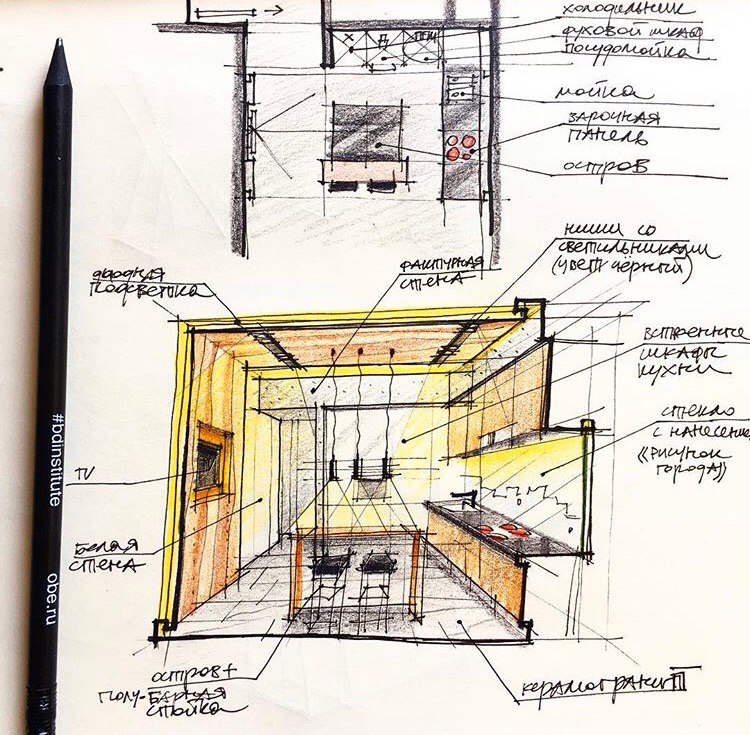 холодильник
духовой шкаф
посудомойка
X
Д
ПМ
мойка
варочная
панель
остров
ниши со
светильниками
(цвет чёрный)
фактурная
стена
диодная
подсветка
встроенные
шкафы
кухни
стекло
с нанесением
«рисунок
города»
TV
белая
стена
остров +
полу-барная
стойка
керамогранит
#bdinstitute
obe.ru